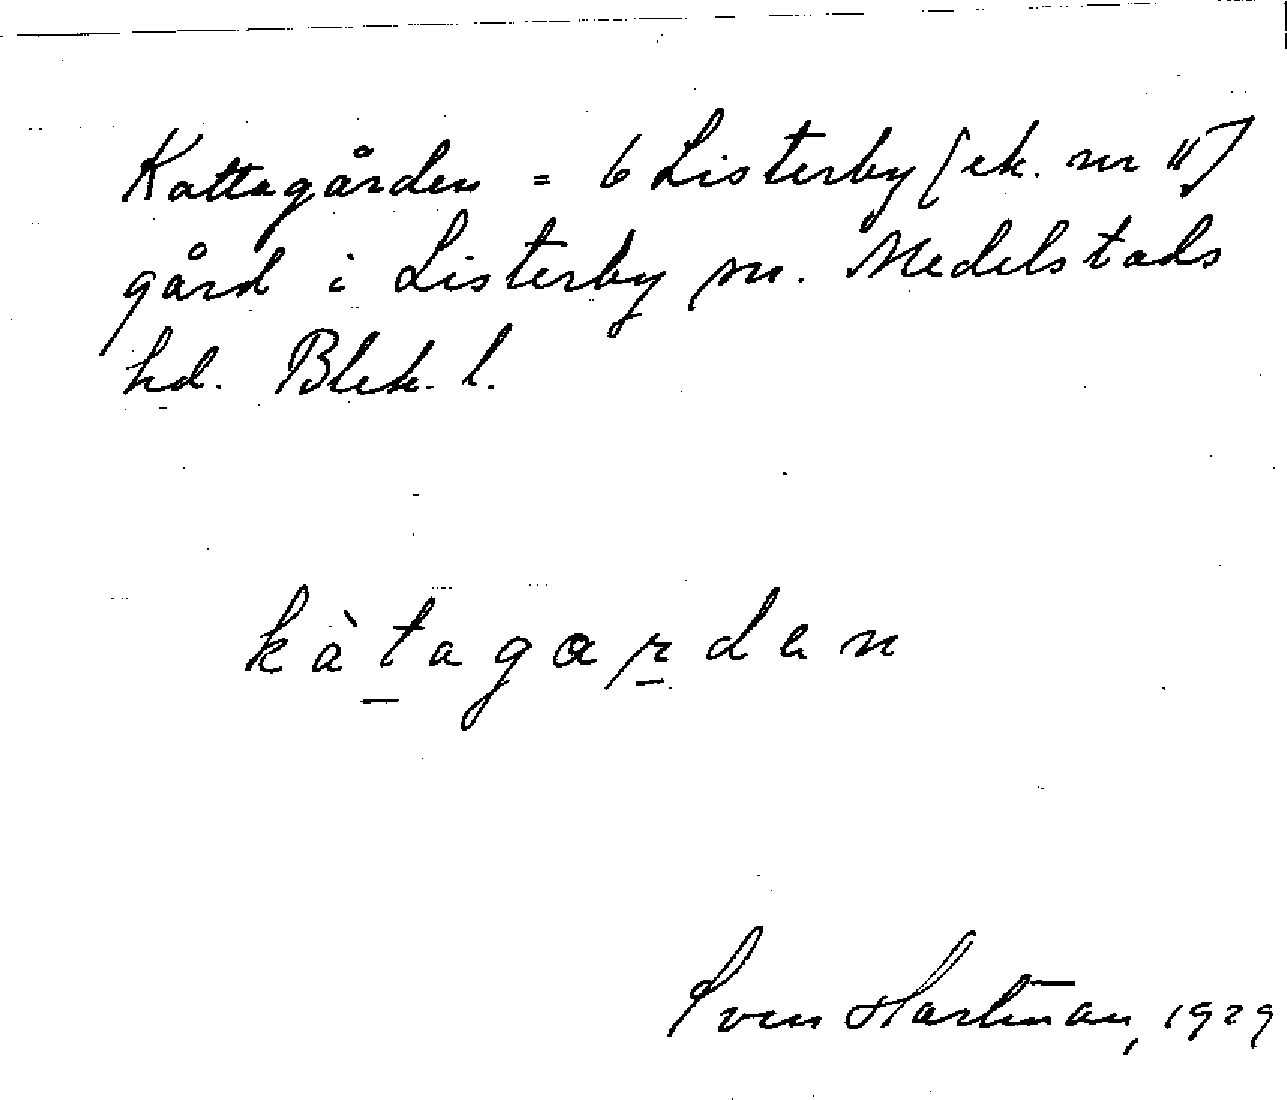 Kattagården = 6 Listerby [ek. nr "]
gård i Listerby sn. Medelstads
hd. Blek. l.
kàtagarden
Sven Hartman, 1929